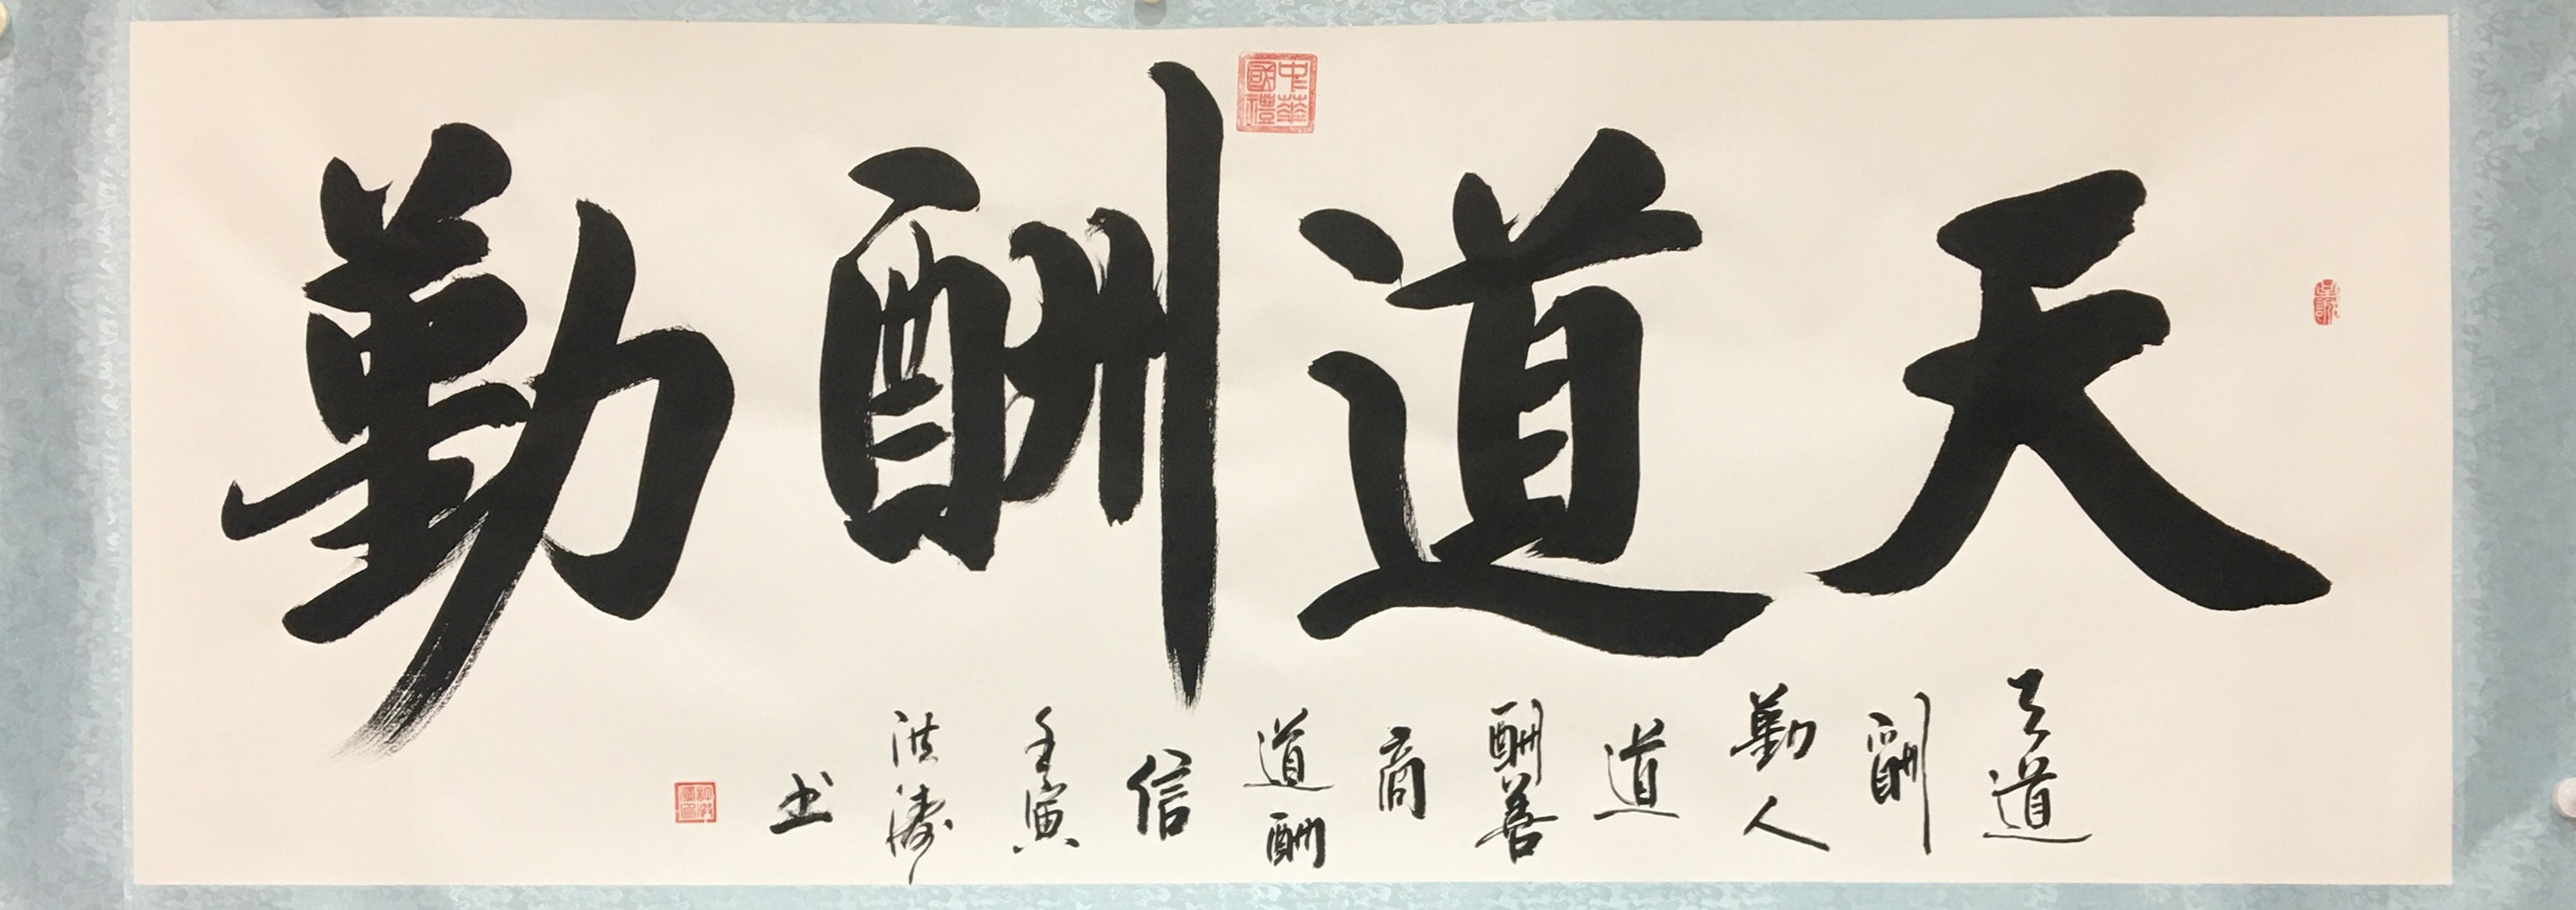 天道酬勤
天道酬勤人道酬善商道酬信壬寅洪濤书
中華國禮